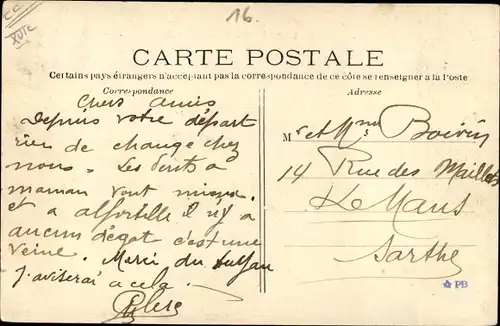 16.
CARTE POSTALE
Certains pays étrangers n'acceptant pas la correspondance de ce côté se renseigner à la Poste
Correspondance
Chers amis
Depuis votre départ
rien de changé chez
nous. Les dents à
maman vont mieux.
et a alfortville il n'y a
aucun dégat c'est une
veine. Merci du
J'aviserai a cela.
Adresse
Mr et Mme Boivin
14 Rue des Maillets
Le Mans
Sarthe
PB